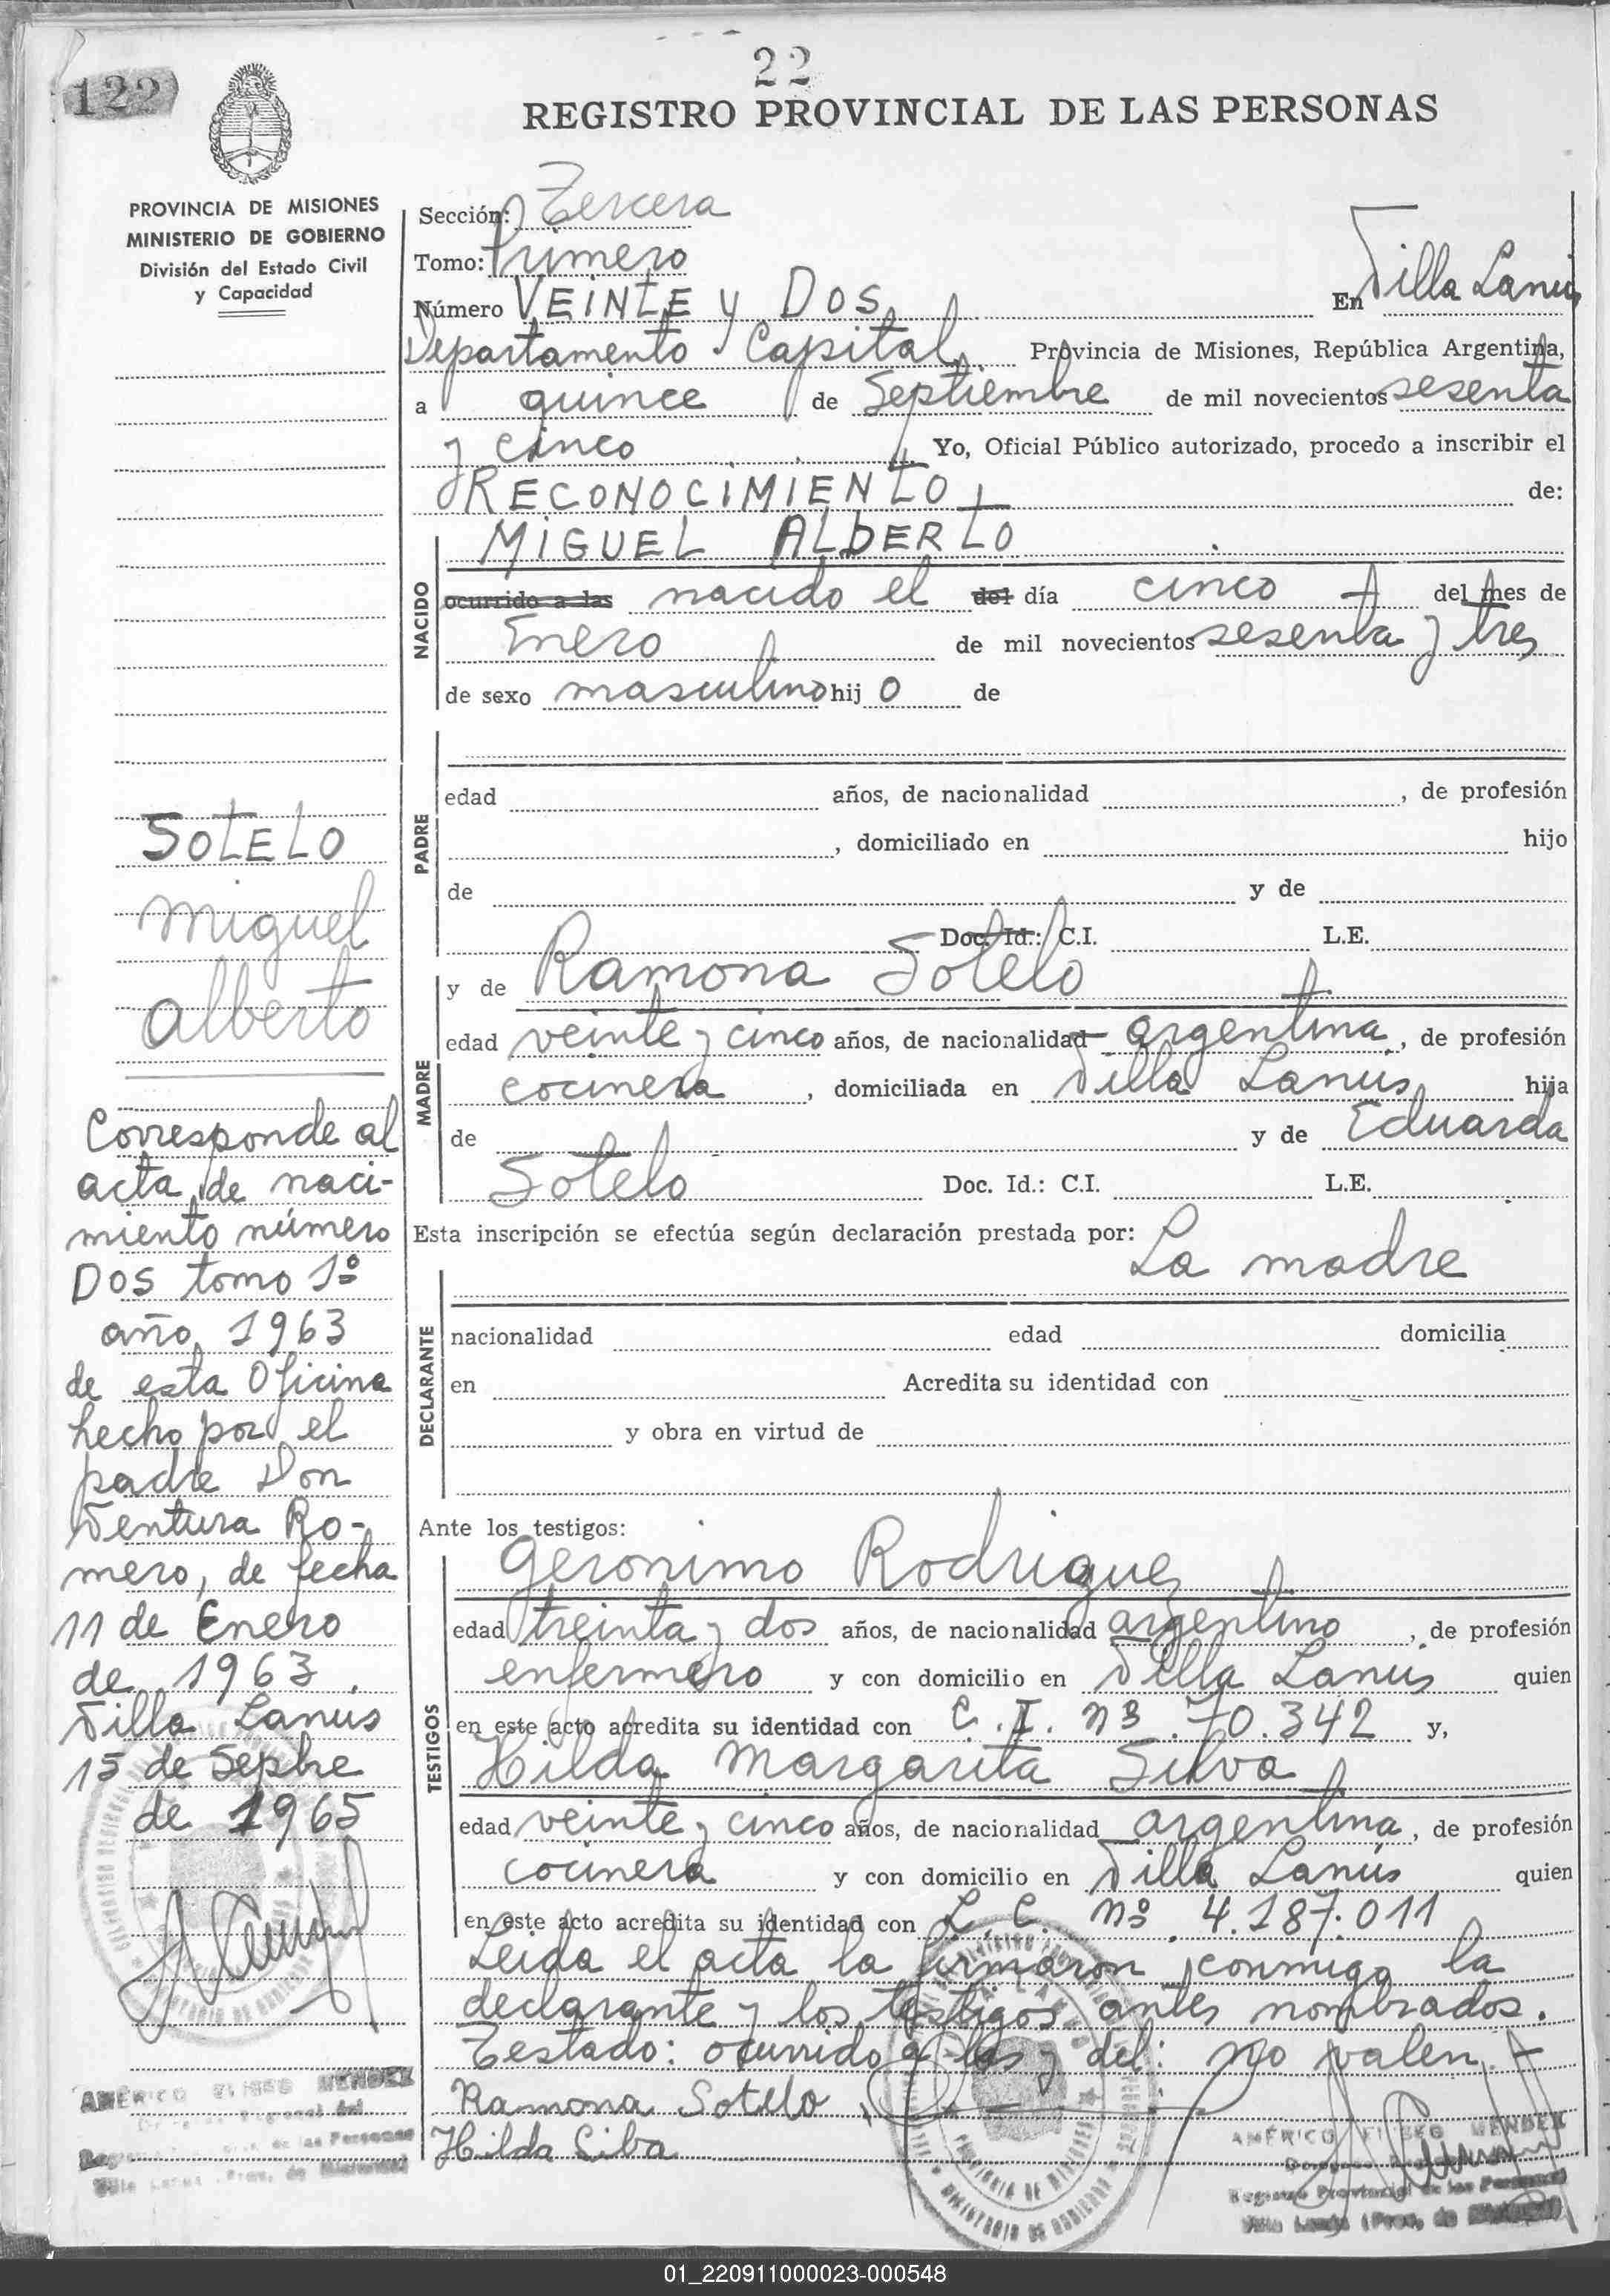 22
122
REGISTRO PROVINCIAL DE LAS PERSONAS
PROVINCIA DE MISIONES
MINISTERIO DE GOBIERNO
División del Estado Civil
y Capacidad
SOTELO
Miguel
Alberto
Corresponde al
acta de naci-
miento número
DOS tomo 1º
año 1963
de esta Oficina
hecho por el
padre Don
Ventura Ro-
mero, de fecha
11 de Enero
de 1963.
Villa Lanus
15 de Sepbre
de 1965
AMÉRICO ELISEO MENDEZ
Sección: Tercera
Tomo: Primero
Número VEINTE y DOS En Villa Lanús
Departamento Capital, Provincia de Misiones, República Argentina,
a quince de Septiembre de mil novecientos sesenta
y cinco Yo, Oficial Público autorizado, procedo a inscribir el
RECONOCIMIENTO de:
NACIDO
MIGUEL ALBERTO
ocurrido a las nacido el del día cinco del mes de
Enero de mil novecientos sesenta y tres
de sexo masculino hij o de
PADRE
edad años, de nacionalidad , de profesión
, domiciliado en hijo
de y de
Doc. Id.: C.I. L.E.
MADRE
y de Ramona Sotelo
edad veinte y cinco años, de nacionalidad argentina, de profesión
cocinera , domiciliada en Villa Lanús, hija
de y de Eduarda
Sotelo Doc. Id.: C.I. L.E.
Esta inscripción se efectúa según declaración prestada por: La madre
DECLARANTE
nacionalidad edad domicilia
en Acredita su identidad con
y obra en virtud de
Ante los testigos:
TESTIGOS
Geronimo Rodriguez
edad treinta y dos años, de nacionalidad argentino, de profesión
enfermero y con domicilio en Villa Lanús quien
en este acto acredita su identidad con C. I. nº 70.342 y,
Hilda Margarita Silva
edad veinte y cinco años, de nacionalidad argentina, de profesión
cocinera y con domicilio en Villa Lanús quien
en este acto acredita su identidad con L. C. nº 4.187.011
Leida el acta la firmaron conmigo la
declarante y los testigos antes nombrados.
Testado: ocurrido a las y del: no valen.
Ramona Sotelo
Hilda Silva
AMÉRICO ELISEO MENDEZ
Registro Provincial de las Personas
Villa Lanús (Prov. de Misiones)
01_220911000023-000548